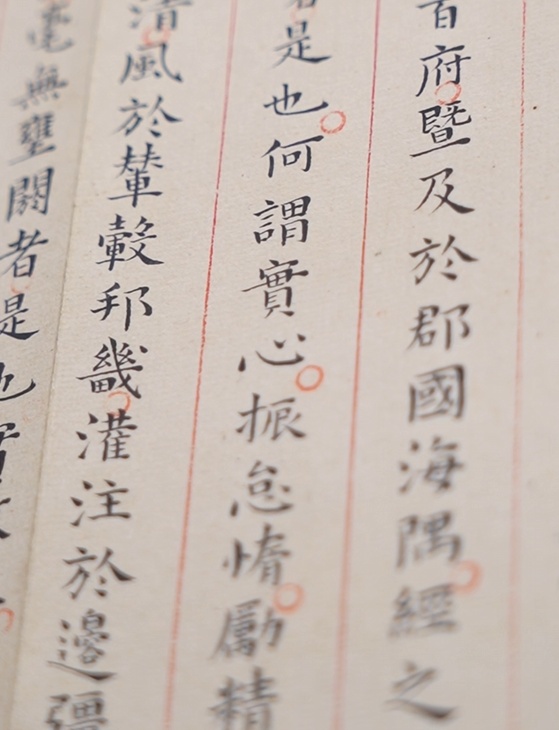 百府暨及於郡國海隅經之
是也何謂實心振怠惰勵精
清風於輦轂邦畿灌注於邊疆
毫無壅閼者是也